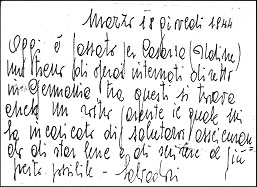 Marzo 18 giovedì 1944
Oggi è passato per Casarsa (Udine)
un treno di operai internati diretto
in Germania tra questi si trova
anche un vostro parente il quale mi
ha incaricato di salutarvi assicuran
dovi di star bene e di scrivere al più
presto possibile - Salvadori